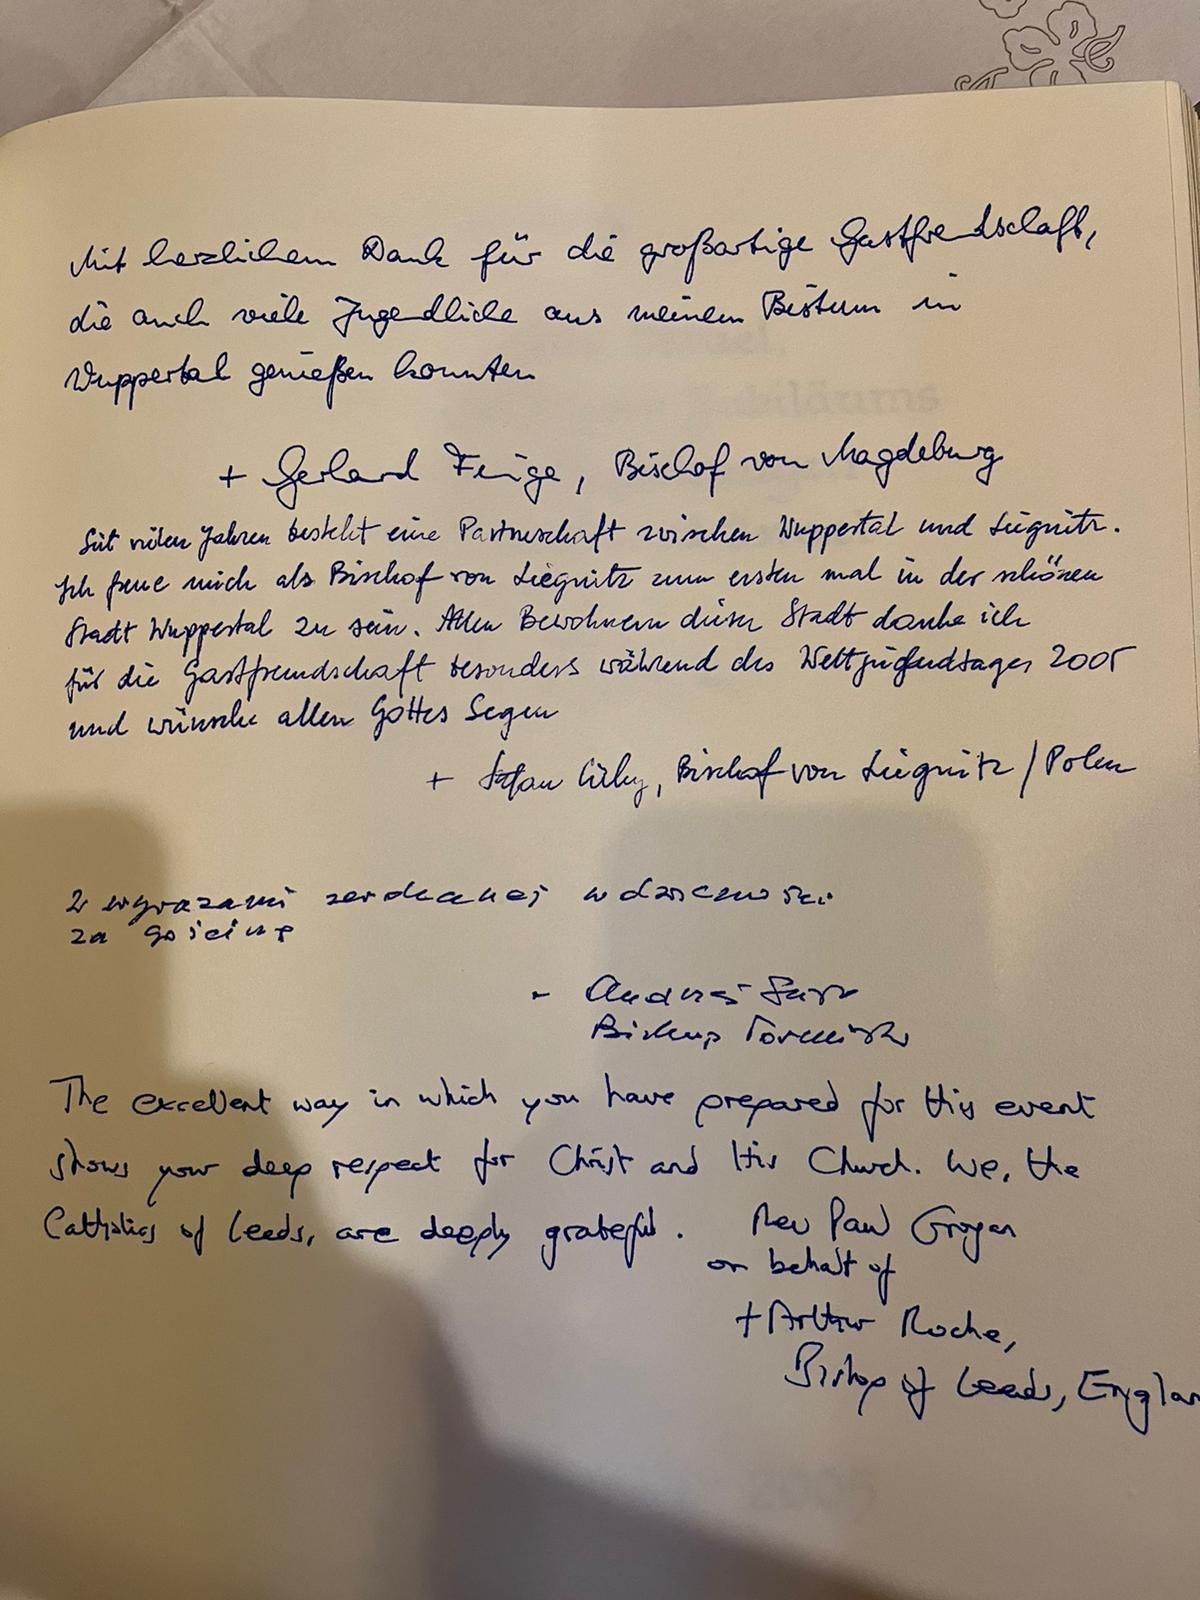 Mit herzlichem Dank für die großartige Gastfreundschaft,
die auch viele Jugendliche aus meinem Bistum in
Wuppertal genießen konnten
+ Gerhard Feige, Bischof von Magdeburg
Seit vielen Jahren besteht eine Partnerschaft zwischen Wuppertal und Liegnitz.
Ich freue mich als Bischof von Liegnitz zum ersten mal in der schönen
Stadt Wuppertal zu sein. Allen Bewohnern dieser Stadt danke ich
für die Gastfreundschaft besonders während des Weltjugendtages 2005
und wünsche allen Gottes Segen
+ Stefan Cichy, Bischof von Liegnitz / Polen
Z wyrazami serdecznej wdzięczności
za gościnę
Andrzej
Biskup Toruński
The excellent way in which you have prepared for this event
shows your deep respect for Christ and His Church. We, the
Catholics of Leeds, are deeply grateful. Rev Paul Grogan
on behalf of
+ Arthur Roche,
Bishop of Leeds, Englan